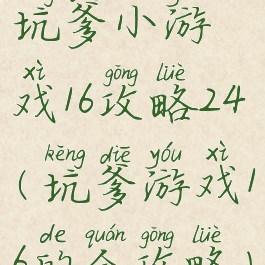 坑爹小游
xì gōng lüè
戏16攻略24
kēng diē yóu xì
(坑爹游戏1
de quán gōng lüè
6的全攻略)